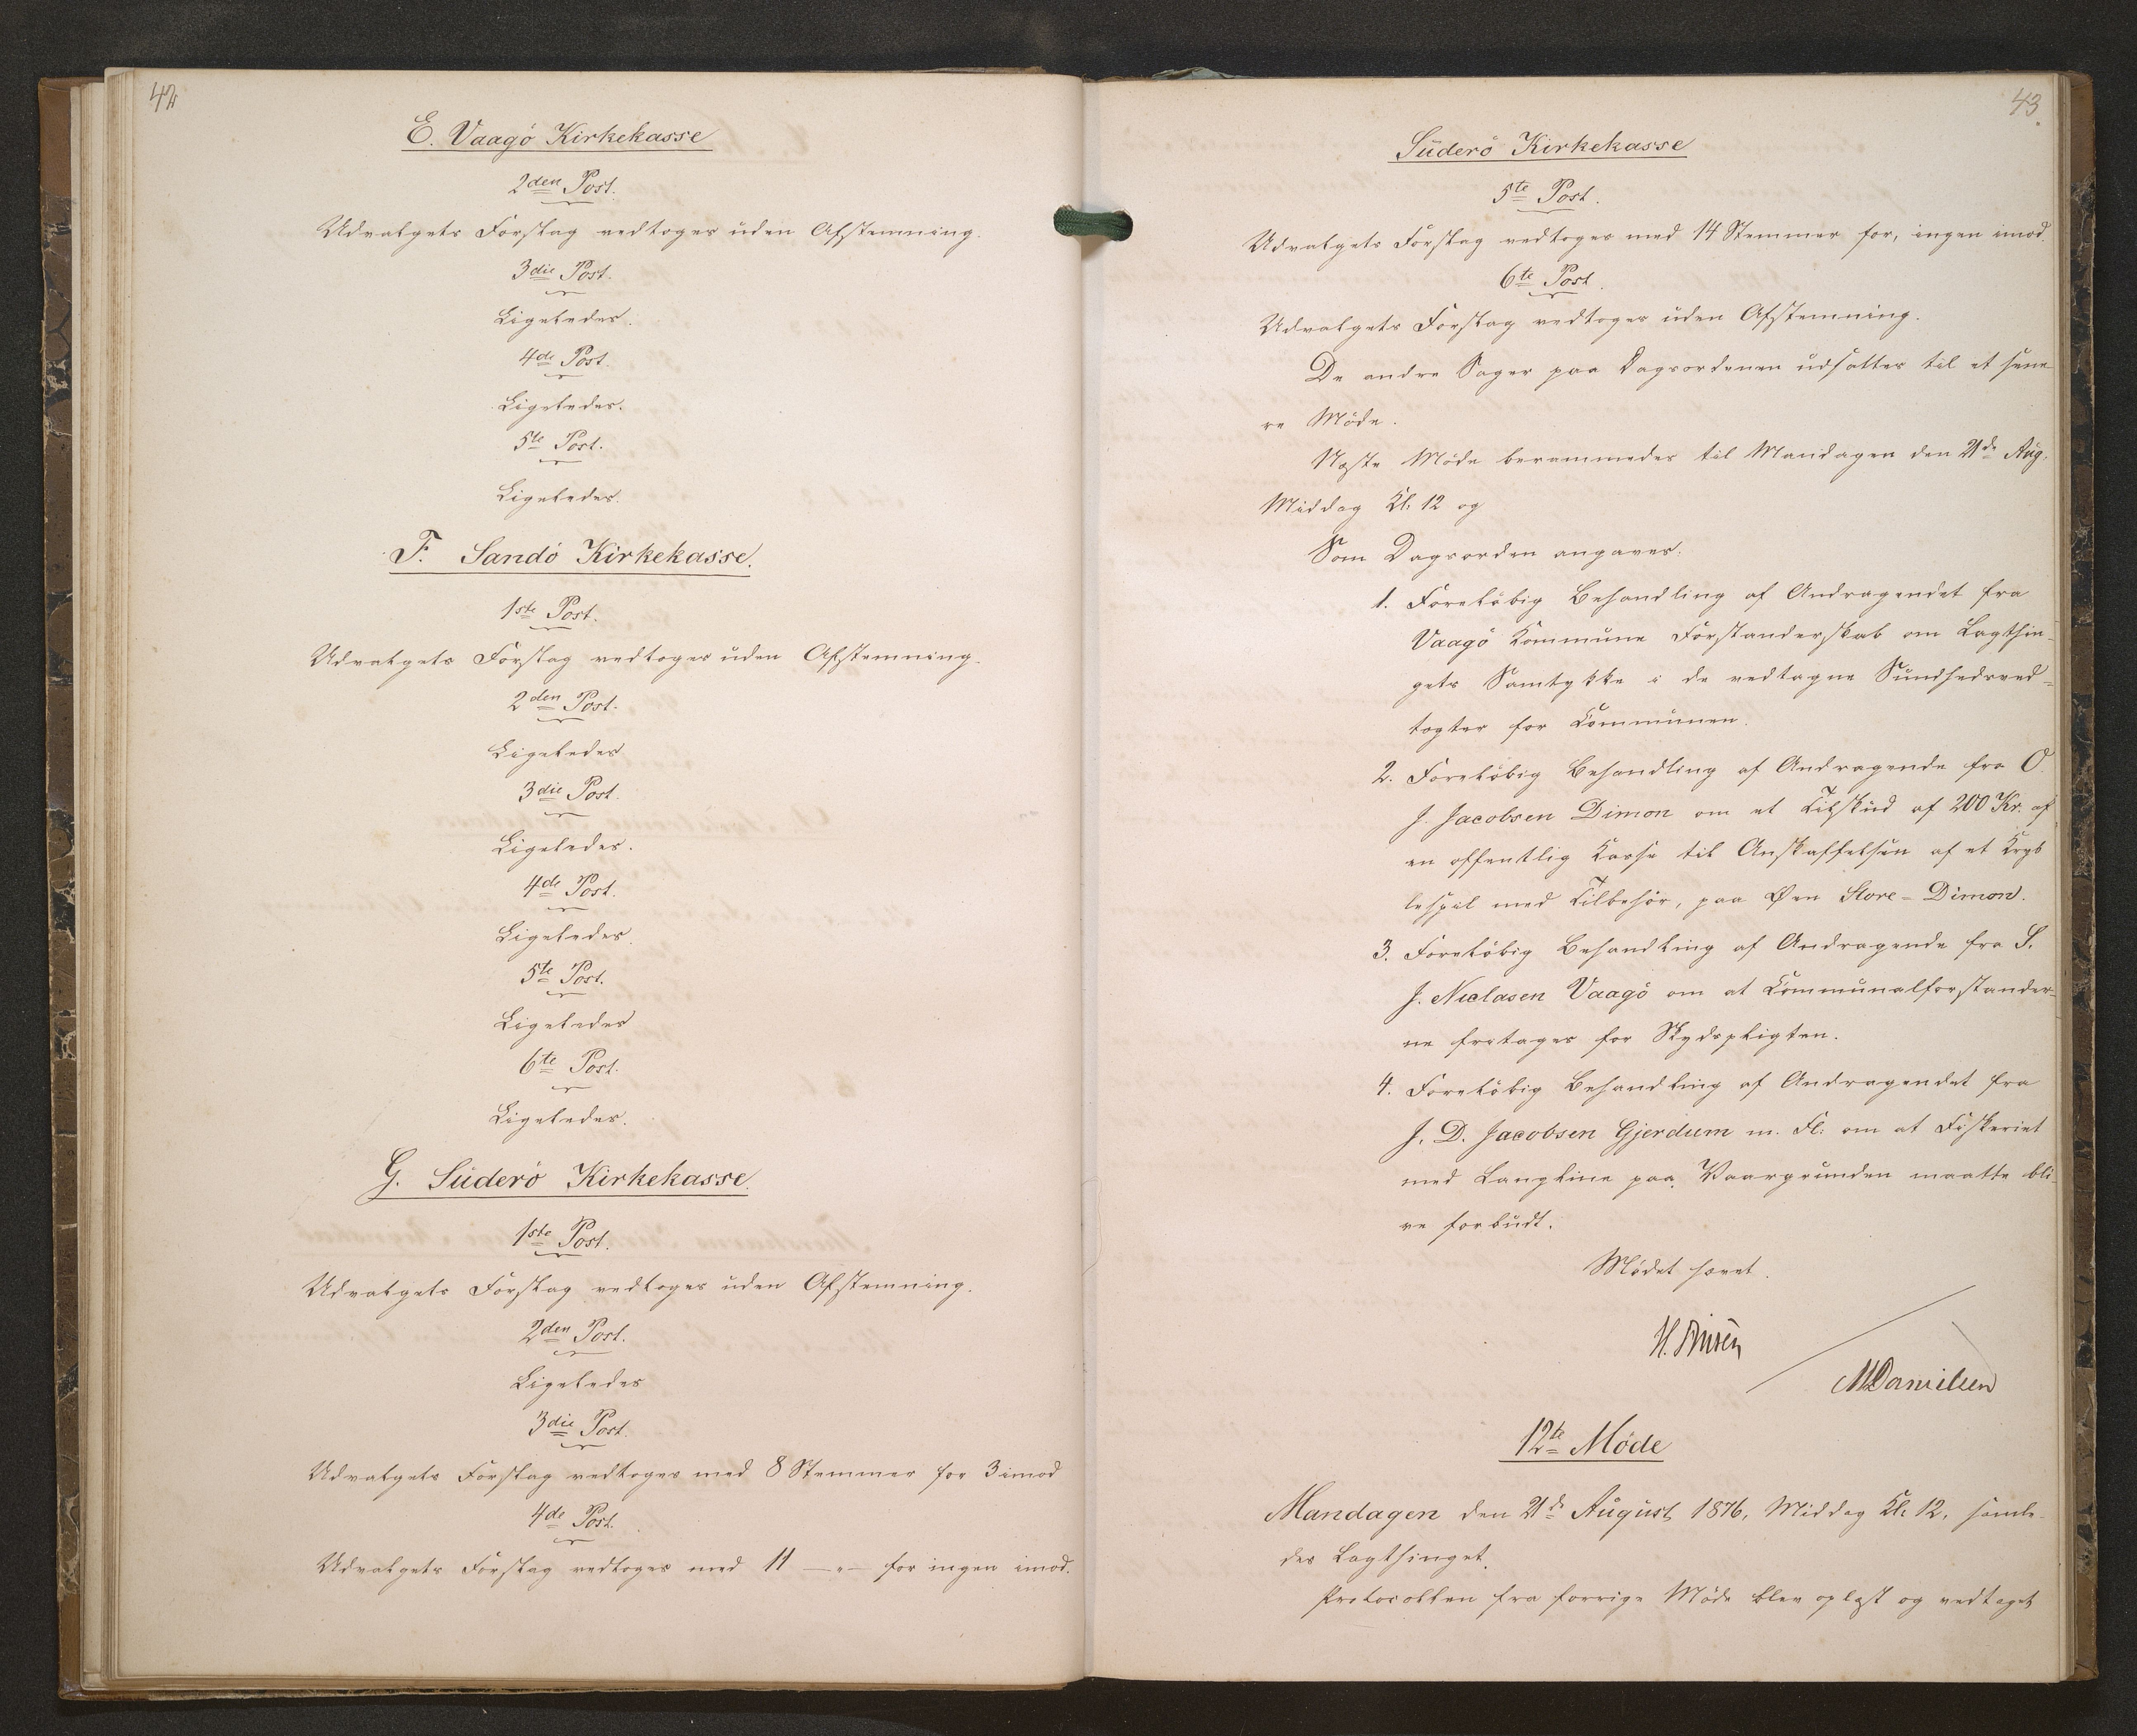 42
E. Vaagö Kirkekasse
2den Post.
Udvalgets Forslag vedtoges uden Afstemning.
3die Post.
Ligeledes.
4de Post.
Ligeledes.
5te Post.
Ligeledes.
F. Sandö Kirkekasse.
1ste Post.
Udvalgets Forslag vedtoges uden Afstemning.
2den Post.
Ligeledes
3die Post.
Ligeledes.
4de Post.
Ligeledes.
5te Post.
Ligeledes
6te Post.
Ligeledes.
G. Suderö Kirkekasse.
1ste Post.
Udvalgets Forslag vedtoges uden Afstemning.
2den Post.
Ligeledes
3die Post.
Udvalgets Forslag vedtoges med 8 Stemmer for 3 imod
4de Post.
Udvalgets Forslag vedtoges med 11 —〃— for ingen imod.
43.
Suderö Kirkekasse
5te Post.
Udvalgets Forslag vedtoges med 14 Stemmer for, ingen imod.
6te Post.
Udvalgets Forslag vedtoges uden Afstemning.
De andre Sager paa Dagsordenen udsattes til et sene
re Möde.
Næste Möde berammedes til Mandagen den 21de Aug.
Middag Kl. 12 og
Som Dagsorden angaves:
1. Forelöbig Behandling af Andragendet fra
Vaagö Kommune Forstanderskab om Lagthin-
gets Samtykke i de vedtagne Sundhedsved=
tægter for Communen.
2. Forelöbig Behandling af Andragende fra O.
J. Jacobsen Dimon om et Tilskud af 200 Kr. af
en offentlig Kasse til Anskaffelsen af et Kryb
lespil med Tilbehör, paa Øen Store-Dimon.
3. Forelöbig Behandling af Andragende fra S.
J. Niclasen Vaagö om at Communalforstander-
ne fritages for Skydspligten.
4. Forelöbig Behandling af Andragendet fra
J. D. Jacobsen Gjerdum m. Fl: om at Fiskeriet
med Langline paa Vaargrunden maatte bli-
ve forbudt.
Mödet hævet.
MDanielsen
12te Möde
Mandagen den 21de August 1876, Middag Kl. 12, samle-
des Lagthinget.
Protocollen fra forrige Möde blev oplæst og vedtaget